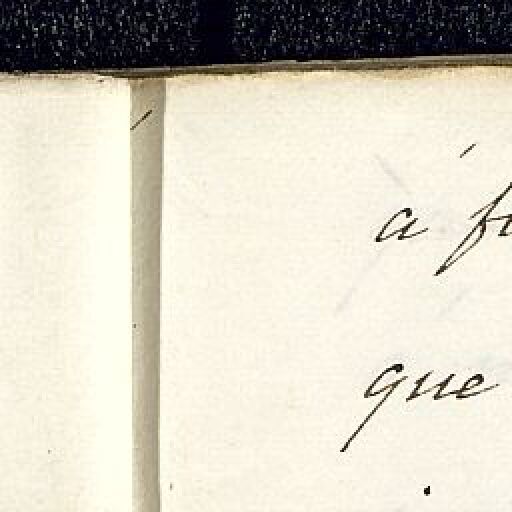 a
que